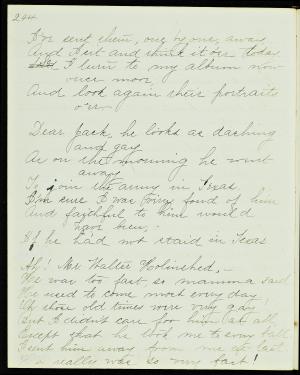 244
I've sent them, one by one, away
And I sit and think it o'er today
I turn to my album now
once more
And look again their portraits
o'er
Dear Jack, he looks as dashing
and gay
As on the morning he went
away
To join the army in Texas
I'm sure I was very fond of him
And faithful to him would
have been,-
If he had not staid in Texas
Ah! Mr Walter Holinshed,-
He was too fast, so mamma said
He used to come most every day
Oh those old times were very gay!
But I didn't care for him at all
Except that he took me to every ball
I sent him away from me at last
He really was so very fast!